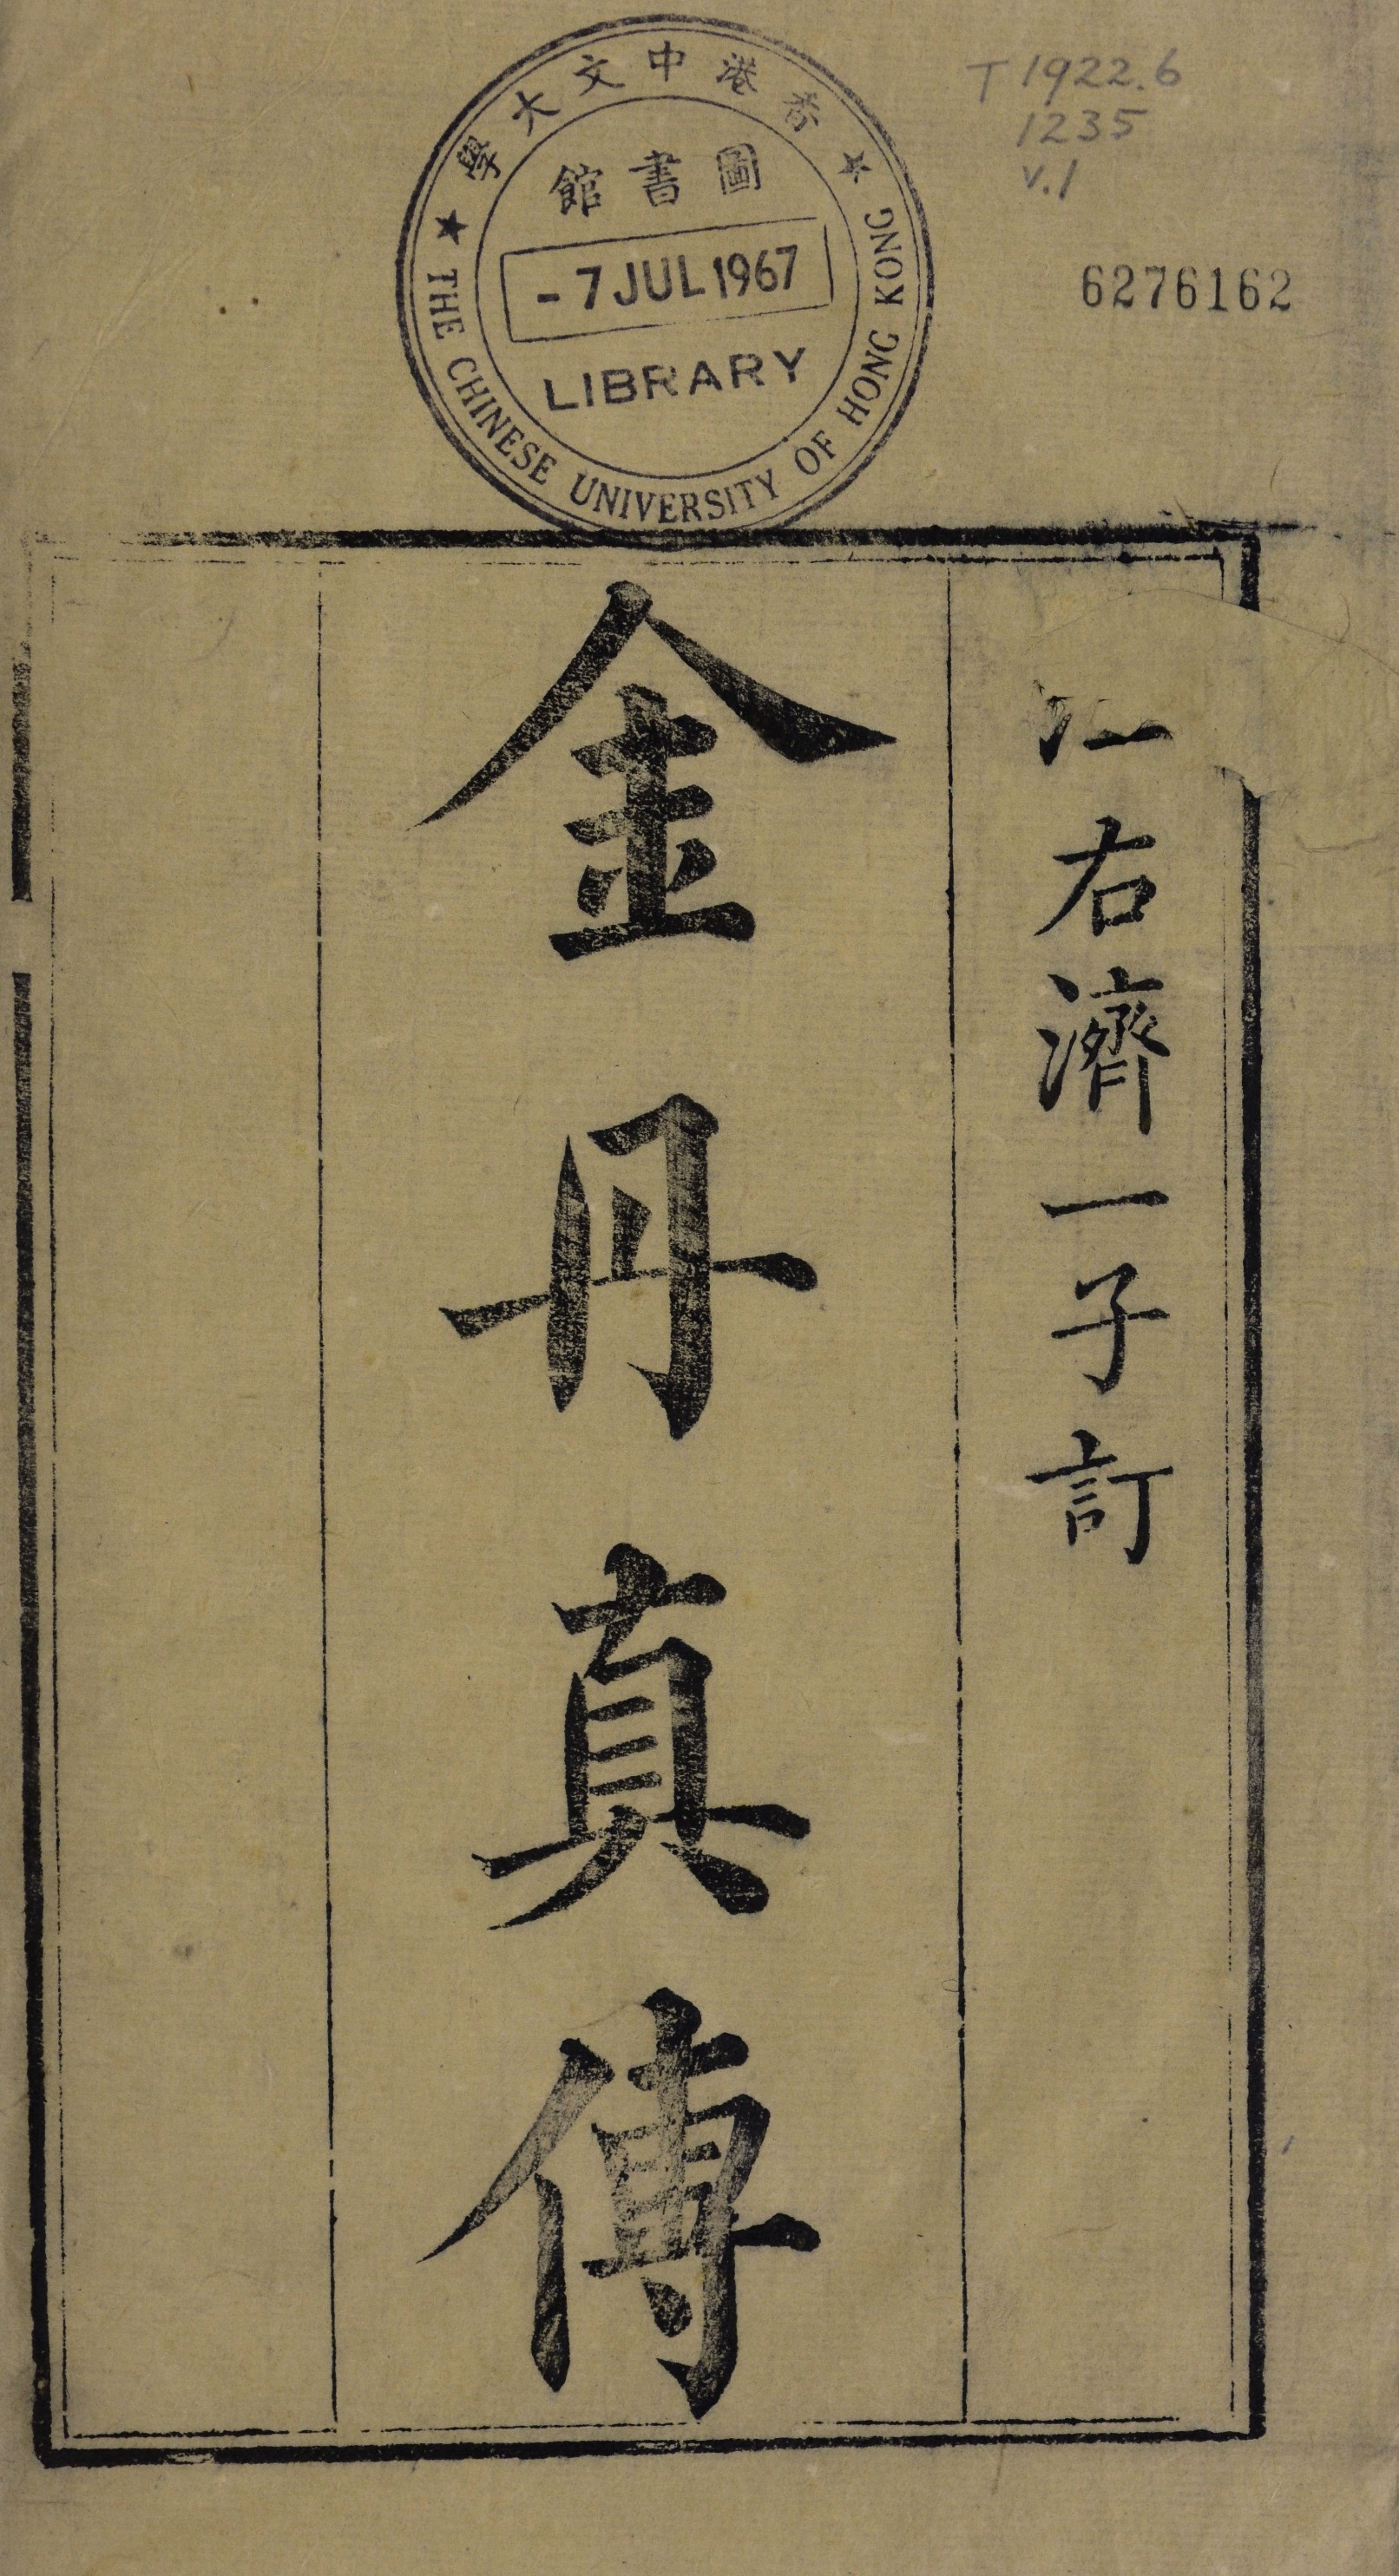 香港中文大學
圖書館
- 7 JUL 1967
LIBRARY
THE CHINESE UNIVERSITY OF HONG KONG
T 1922.6
1235
v.1
6276162
江右濟一子訂
金丹真傳